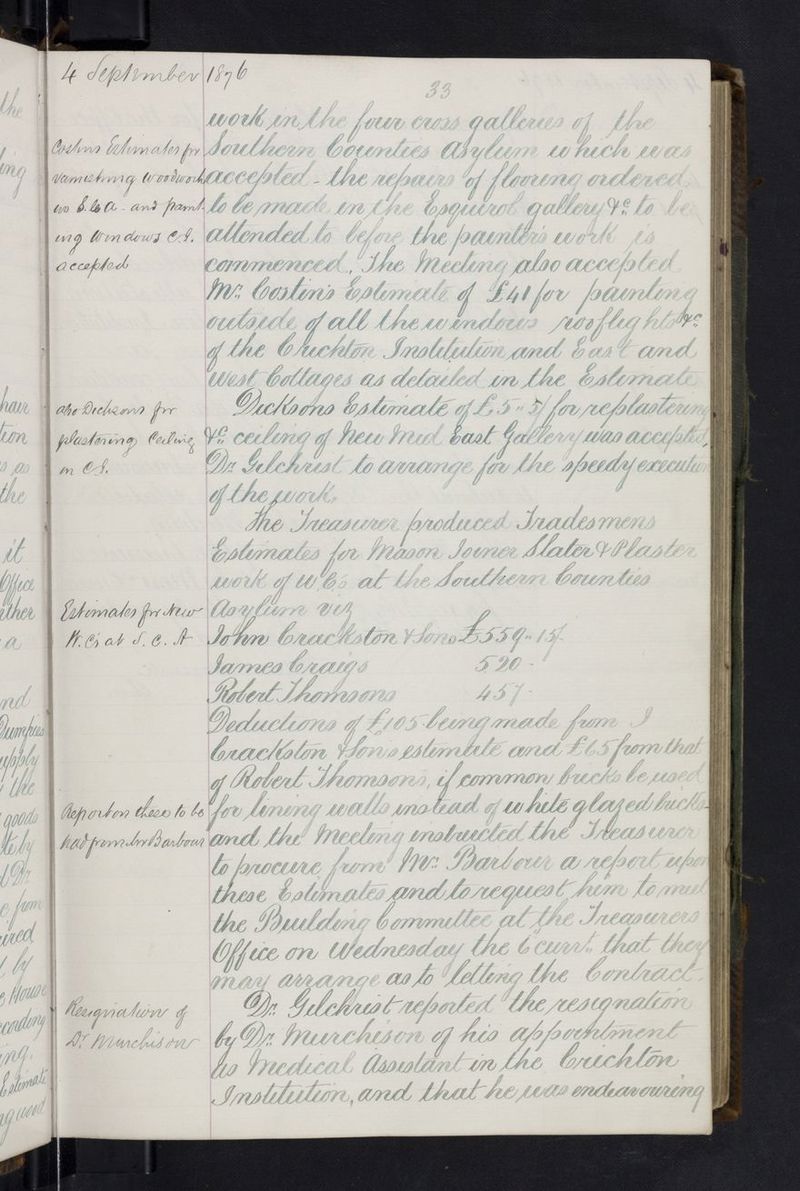 4 September 1876
33
work in the four cross galleries of the
Costins Estimates for
Southern Counties Asylum which was
varnishing woodwork
accepted - the repairs of flooring ordered
in S.C.A. and paint-
to be made in the Esquirol gallery &c. to be
ing windows C.I.
attended to before the painters work is
accepted
commenced. The Meeting also accepted
Mr. Costin's Estimate of £41 for painting
outside of all the windows rooflights &c
of the Crichton Institution and East and
West Cottages as detailed in the Estimate
also Dicksons for
Dicksons Estimate of £5 " 5/ for replastering
plastering Ceiling
&c. ceiling of New Mid East Gallery was accepted,
in C.I.
Dr. Gilchrist to arrange for the speedy execution
of the work.
The Treasurer produced Tradesmens
Estimates for Mason Joiner Slater & Plaster
work of W.C's at the Southern Counties
Estimates for New
Asylum viz
W.C's at S.C.A
John Crackston & Sons £559 " 15/-
James Craigs 520 -
Robert Thomsons 457 -
Deductions of £105 being made from J
Crackston & Sons estimate and £65 from that
of Robert Thomsons, if common bricks be used
Report on these to be
for lining walls instead of white glazed bricks -
had from Mr Barbour
and the Meeting instructed the Treasurer
to procure from Mr. Barbour a report upon
these Estimates and to request him to meet
the Building Committee at the Treasurers
Office on Wednesday the 6 curr.t that they
may arrange as to letting the Contract.
Resignation of
Dr. Gilchrist reported the resignation
Dr Murchison
by Dr. Murchison of his appointment
as Medical Assistant in the Crichton
Institution, and that he was endeavouring